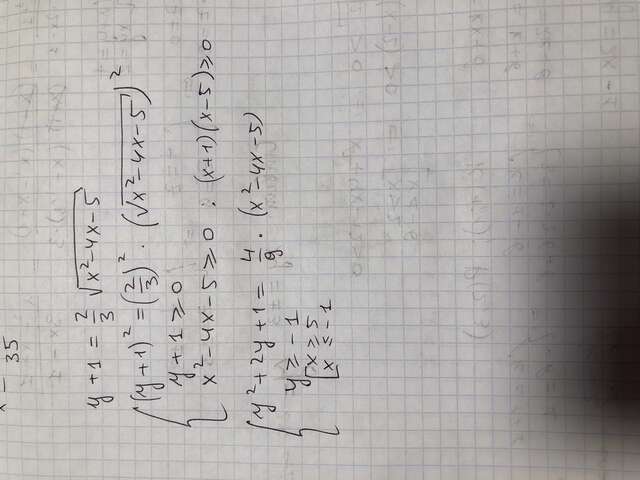 35
y + 1 = 2/3 √(x² - 4x - 5)
{ (y + 1)² = (2/3)² · (√(x² - 4x - 5))²
y + 1 ≥ 0
x² - 4x - 5 ≥ 0 ; (x+1)(x-5) ≥ 0
{ y² + 2y + 1 = 4/9 · (x² - 4x - 5)
y ≥ -1
[ x ≥ 5
x ≤ -1